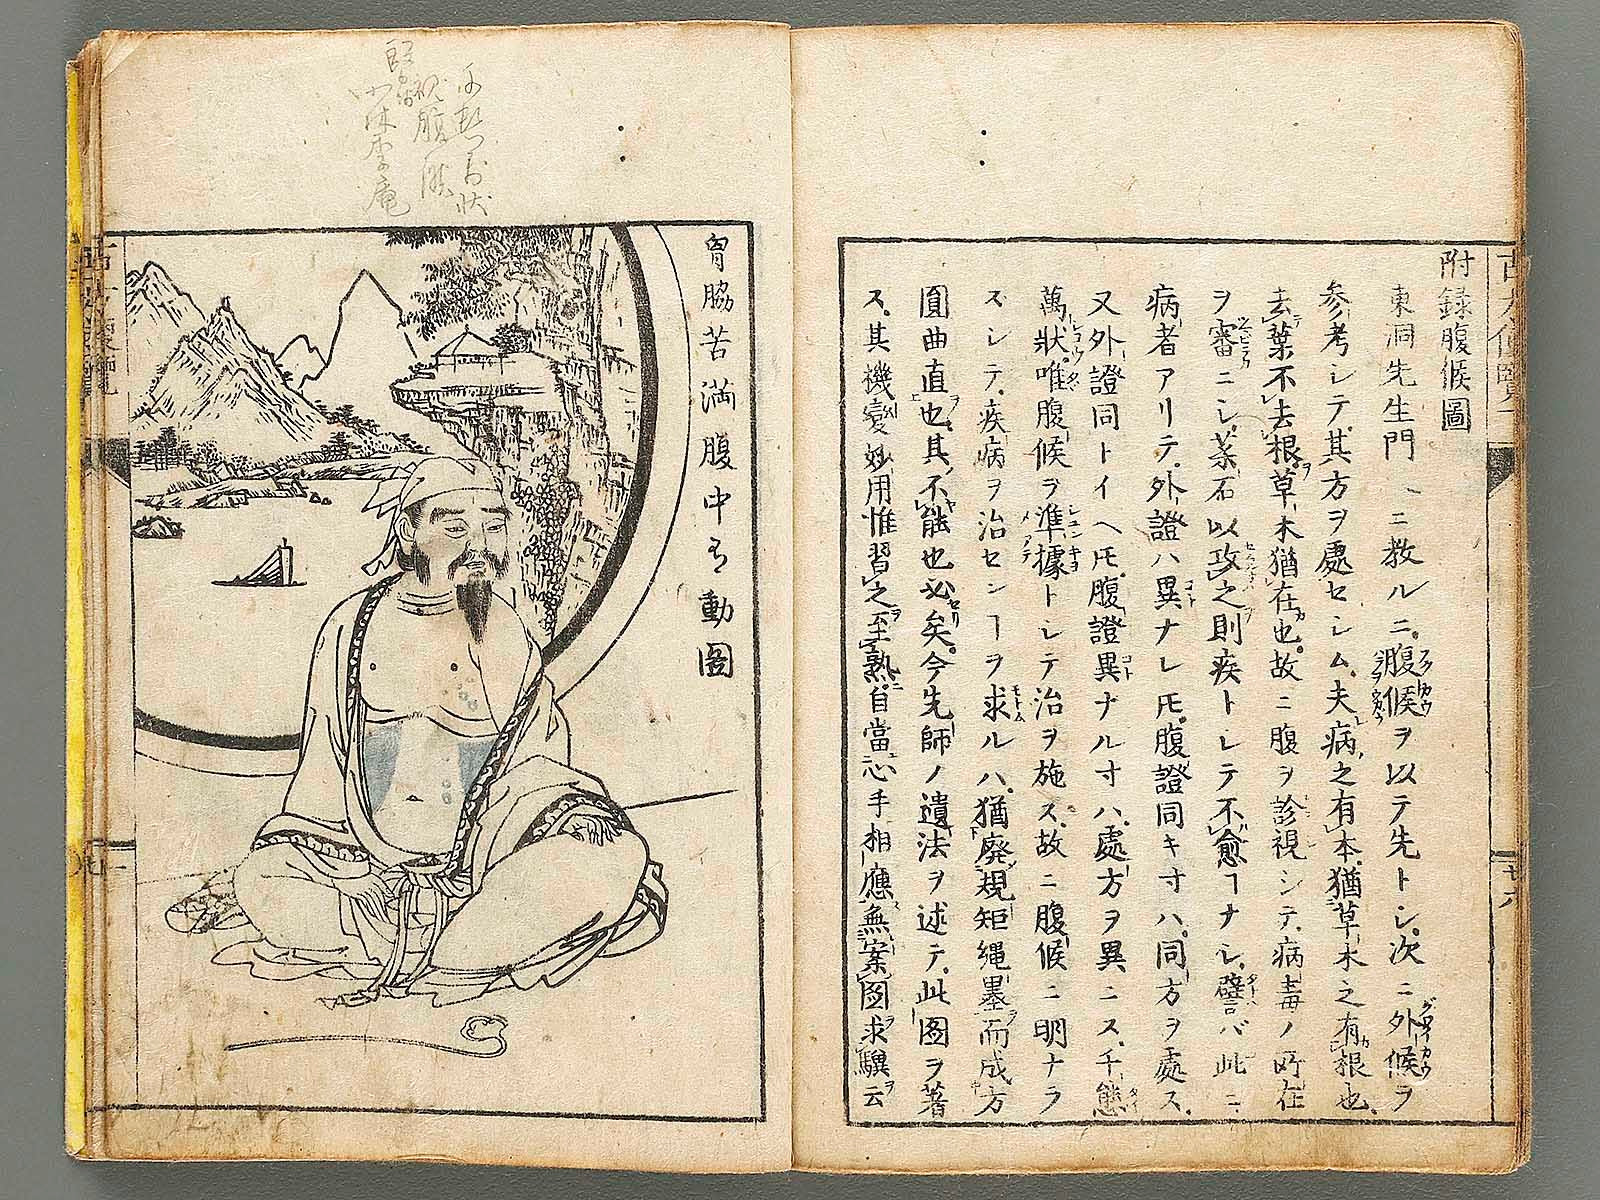 附録腹候圖
東洞先生門人ニ教ルニ腹候ヲ以テ先トシ次ニ外候ヲ
参考シテ其方ヲ處セシム夫病之有本猶草木之有根也
去葉不去根草木猶在也故ニ腹ヲ診視シテ病毒ノ所在
ヲ審ニシ薬石以攻之則疾トシテ不愈ヿナシ譬バ此ニ
病者アリテ外證ハ異ナレ𪜈腹證同キ寸ハ同方ヲ處ス
又外證同トイヘ𪜈腹證異ナル寸ハ處方ヲ異ニス千態
萬狀唯腹候ヲ準據トシテ治ヲ施ス故ニ腹候ニ明ナラ
スシテ疾病ヲ治センヿヲ求ルハ猶廃規矩縄墨而成方
圓曲直也其不能也必矣今先師ノ遺法ヲ述テ此图ヲ著
ス其機變妙用惟習之至熟自當心手相應無案图求驥云
胷脇苦満腹中有動圖